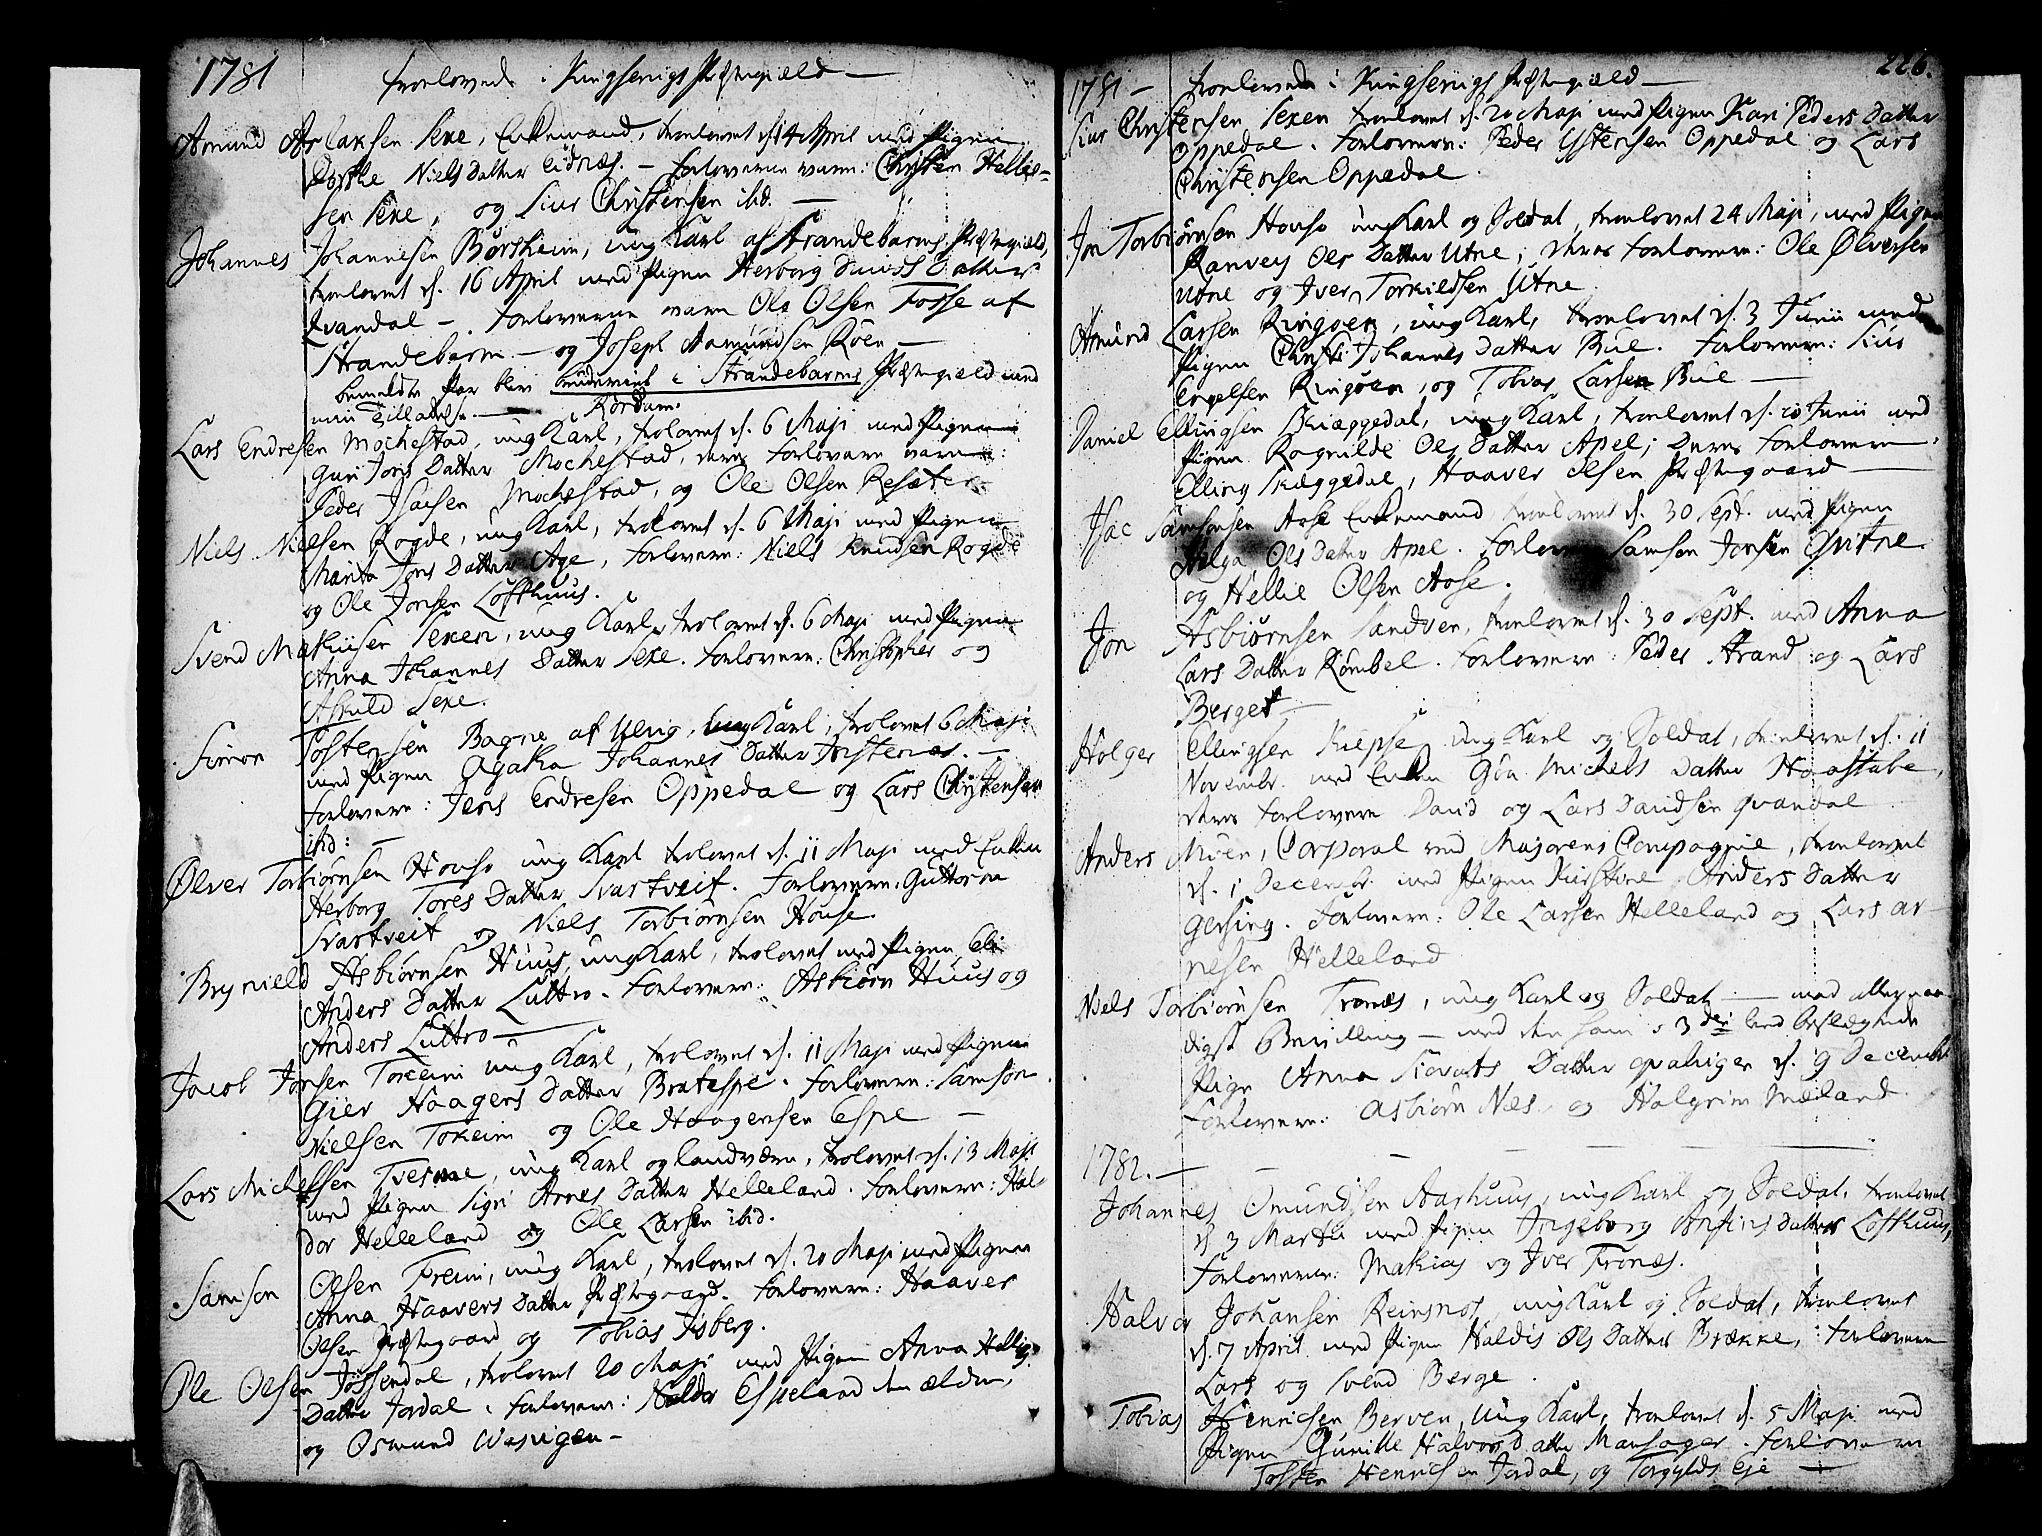 1781 troelovede i Kingservigs Præstegiæld —
Amund Aslaksen Sexe, Enkemand, troelovet d. 14 April med Pigen
Dorthe Niels Datter Eidnæs. — Forloverne vare: Christen Hellie-
sen Sexe, og Siur Christensen ibid. —
Johannes Johannesen Børsheim, ung Karl af Strandebarms Præstegiæld,
troelovet d. 16 April med Pigen Herborg Datter
Qvandal —. Forloverne vare Ole Olsen Fosse af
Strandebarm — og Joseph Aamundsen Røen —
bemeldte Par blev i Strandebarms Præstegiæld med
min Tilladelse. —
Lars Endresen Mochestad, ung Karl, trolovet d. 6 Maji med Pigen
Guri Jons Datter Mochestad, deres Forlovere vare:
Peder Isacsen Mochestad, og Ole Olsen Resæter
Niels Nielsen Rogde, ung Karl, trolovet d. 6 Maji med Pigen
Marita Jons Datter Age, Forlovere: Niels Knudsen Rogde
og Ole Jonsen Lofthuus.
Svend Mathisen Sexen, ung Karl, trolovet d. 6 Maji med Pigen
Anna Johannes Datter Sexe. Forlovere: Christopher og
Askild Sexe.
Simon Tostensen Bagne af Ulvig, ung Karl, trolovet 6 Maji
med Pigen Agata Johannes Datter —
Forlovere: Jens Endresen Oppedal og Lars Christensen
ibid: —
Ølver Torbiørnsen Housø ung Karl trolovet d. 11 Maji med Enken
Herborg Tores Datter Svartveit. Forlovere: Guttorm
Svartveit og Niels Torbiørnsen Housø.
Brynield Asbiørnsen Huus, ung Karl, trolovet med Pigen Eli
Anders Datter Luttro. Forlovere: Asbiørn Huus og
Anders Luttro —
Jacob Jonsen Tokeim ung Karl, trolovet d. 11 Maji med Pigen
Gier Haagens Datter Bratespe. Forlovere: Samson
Nielsen Tokeim og Ole Haagensen Espe —
Lars Michelsen Tvesme, ung Karl og landværn, trolovet d. 13 Maji
med Pigen Sigri Arnes Datter Helleland. Forlovere: Hal-
dor Helleland og Ole Larsen ibid.
Samson Olsen Freim, ung Karl, trolovet d. 20 Maji med Pigen
Anna Haavers Datter Præstegaard. Forlovere: Haaver
Olsen Præstegaard og Tobias Isberg.
Ole Olsen Jøssendal, trolovet 20 Maji med Pigen Anna Hellig
Datter Jordal. Forlovere: Haldor Espeland den ældre,
og Osmund —
226.
1781 — troelovede i Kingservigs Præstegiæld —
Siur Christensen Sexen troelovet d. 20 Maji med Pigen Kari Peders Datter
Oppedal. Forlovere: Peder Ystensen Oppedal og Lars
Christensen Oppedal.
Jon Torbiørnsen Housø ung Karl og Soldat, troelovet 24 Maji, med Pigen
Ranvey Ols Datter Utne; deres Forlovere: Ole Ølversen
Utne og Iver Torkieldsen Utne.
Amund Larsen Ringøen, ung Karl, troelovet d. 3 Junii med
Pigen Christi Johannes Datter Bue. Forlovere: Siur
Engelsen Ringøen, og Tobias Larsen Bue —
Daniel Ellingsen Skiæggedal, ung Karl, troelovet d. 10 Junii med
Pigen Ragnilde Ols Datter Apel; Deres Forlovere
Elling Skæggedal, Haaver Olsen Præstegaard —
Isac Samsonsen Aase Enkemand, troelovet d. 30 Sept. med Pigen
Helga Ols Datter Apel. Forlovere Samson Jonsen Qvitne
og Hellie Olsen Aase.
Jon Asbiørnsen Sandven, troelovet d. 30 Sept. med Anna
Lars Datter Rømbel. Forlovere: Peder Strand og Lars
Berget —
Holger Ellingsen Kiepse, ung Karl og Soldat, troelovet d. 11
Novembr. med Enken Gøa Michels Datter Haastabe,
deres Forlovere David og Lars Davidsen Qvandal
Anders Moen, Corporal ved Majorens Compagnie, troelovet
d. 1 Decembr. med Pigen Kirstine Anders Datter
Giersing. Forlovere: Ole Larsen Helleland og Lars Ar-
nesen Helleland
Niels Torbiørnsen Tronæs, ung Karl og Soldat — med allernaa-
digst Bevilling — med den ham i 3 der led beslægtede
Pige Anna Siovats Datter d. 9 Decembr.
Forlovere: Asbiørn Næs og Halgrim Mæland.
1782. —
Johannes Omundsen Aarhuus, ung Karl og Soldat, troelovet
d. 3 Martii med Pigen Ingeborg Anfins Datter Lofthuus,
Forlovere: Mathias og Iver Tronæs.
Halvor Johansen Reinsnos, ung Karl og Soldat, troelovet
d. 7 April med Pigen Haldis Ols Datter Brække, Forlovere
Lars og Svend Berge.
Tobias Henricsen Berven, ung Karl, troelovet d. 5 Maji med
Pigen Gunille Halvors Datter Mansager. Forlovere
Tosten Henricsen Jordal, og Torgylds Eje —